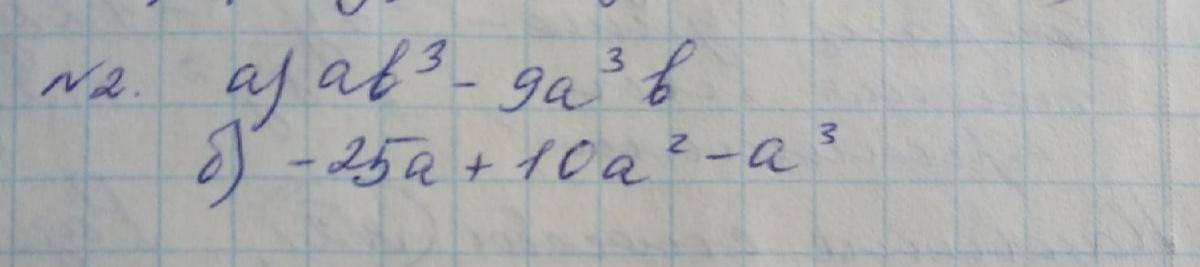 №2. а) ab³ - 9a³b
б) -25a + 10a² - a³